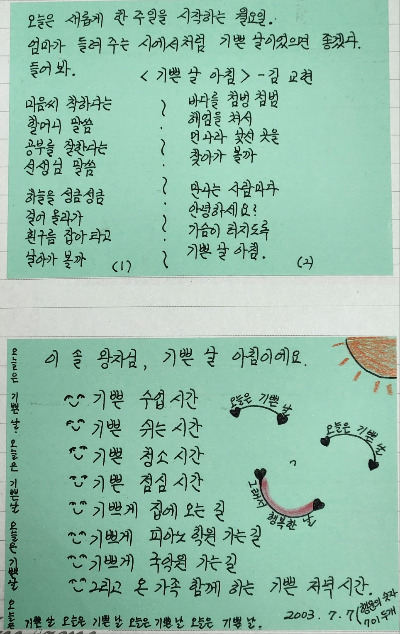 오늘은 새롭게 한 주일을 시작하는 월요일.
엄마가 들려 주는 시에서처럼 기쁜 날이었으면 좋겠다.
들어 봐.
< 기쁜 날 아침 > - 김 교현
마음씨 착하다는
할머니 말씀
공부를 잘한다는
선생님 말씀
하늘을 성큼성큼
걸어 올라가
흰구름 집어 타고
날아가 볼까
(1)
바다를 첨벙 첨벙
헤엄을 쳐서
먼 나라 꽃선 곳을
찾아가 볼까
만나는 사람마다
안녕하세요?
가슴이 터지도록
기쁜 날 아침.
(2)
이 솔 왕자님, 기쁜 날 아침이에요.
기쁜 수업 시간
기쁜 쉬는 시간
기쁜 청소 시간
기쁜 점심 시간
기쁘게 집에 오는 길
기쁘게 피아노 학원 가는 길
기쁘게 국악원 가는 길
그리고 온 가족 함께 하는 기쁜 저녁 시간.
오늘은 기쁜 날
오늘은 기쁜 날
그래서 행복한 날
오늘은 기쁜 날 오늘은 기쁜 날 오늘은 기쁜 날
오늘은 기쁜 날 오늘은 기쁜 날 오늘은 기쁜 날.
2003. 7. 7 (행운의 숫자
7이 두개